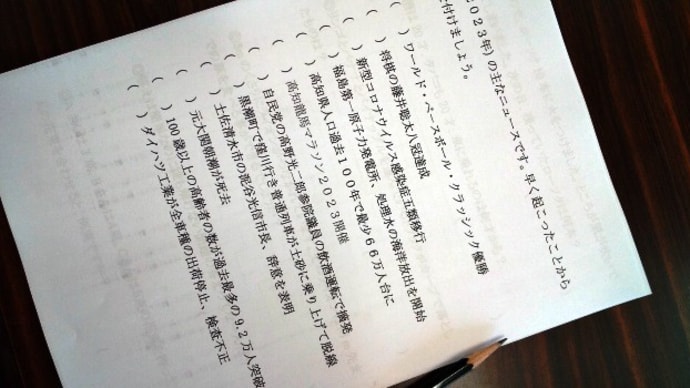 ２０２３年）の主なニュースです。早く起こったことから
付けましょう。
（　）ワールド・ベースボール・クラッシック優勝
（　）将棋の藤井聡太八冠達成
（　）新型コロナウイルス感染症五類移行
（　）福島第一原子力発電所、処理水の海洋放出を開始
（　）高知県人口過去１００年で最少６６万人台に
（　）高知龍馬マラソン２０２３開催
（　）自民党の高野光二郎参院議員の飲酒運転で摘発
（　）黒潮町で窪川行き普通列車が土砂に乗り上げて脱線
（　）土佐清水市の泥谷光信市長、辞意を表明
（　）元大関朝潮が死去
（　）100歳以上の高齢者の数が過去最多の９.２万人突破
（　）ダイハツ工業が全車種の出荷停止、検査不正